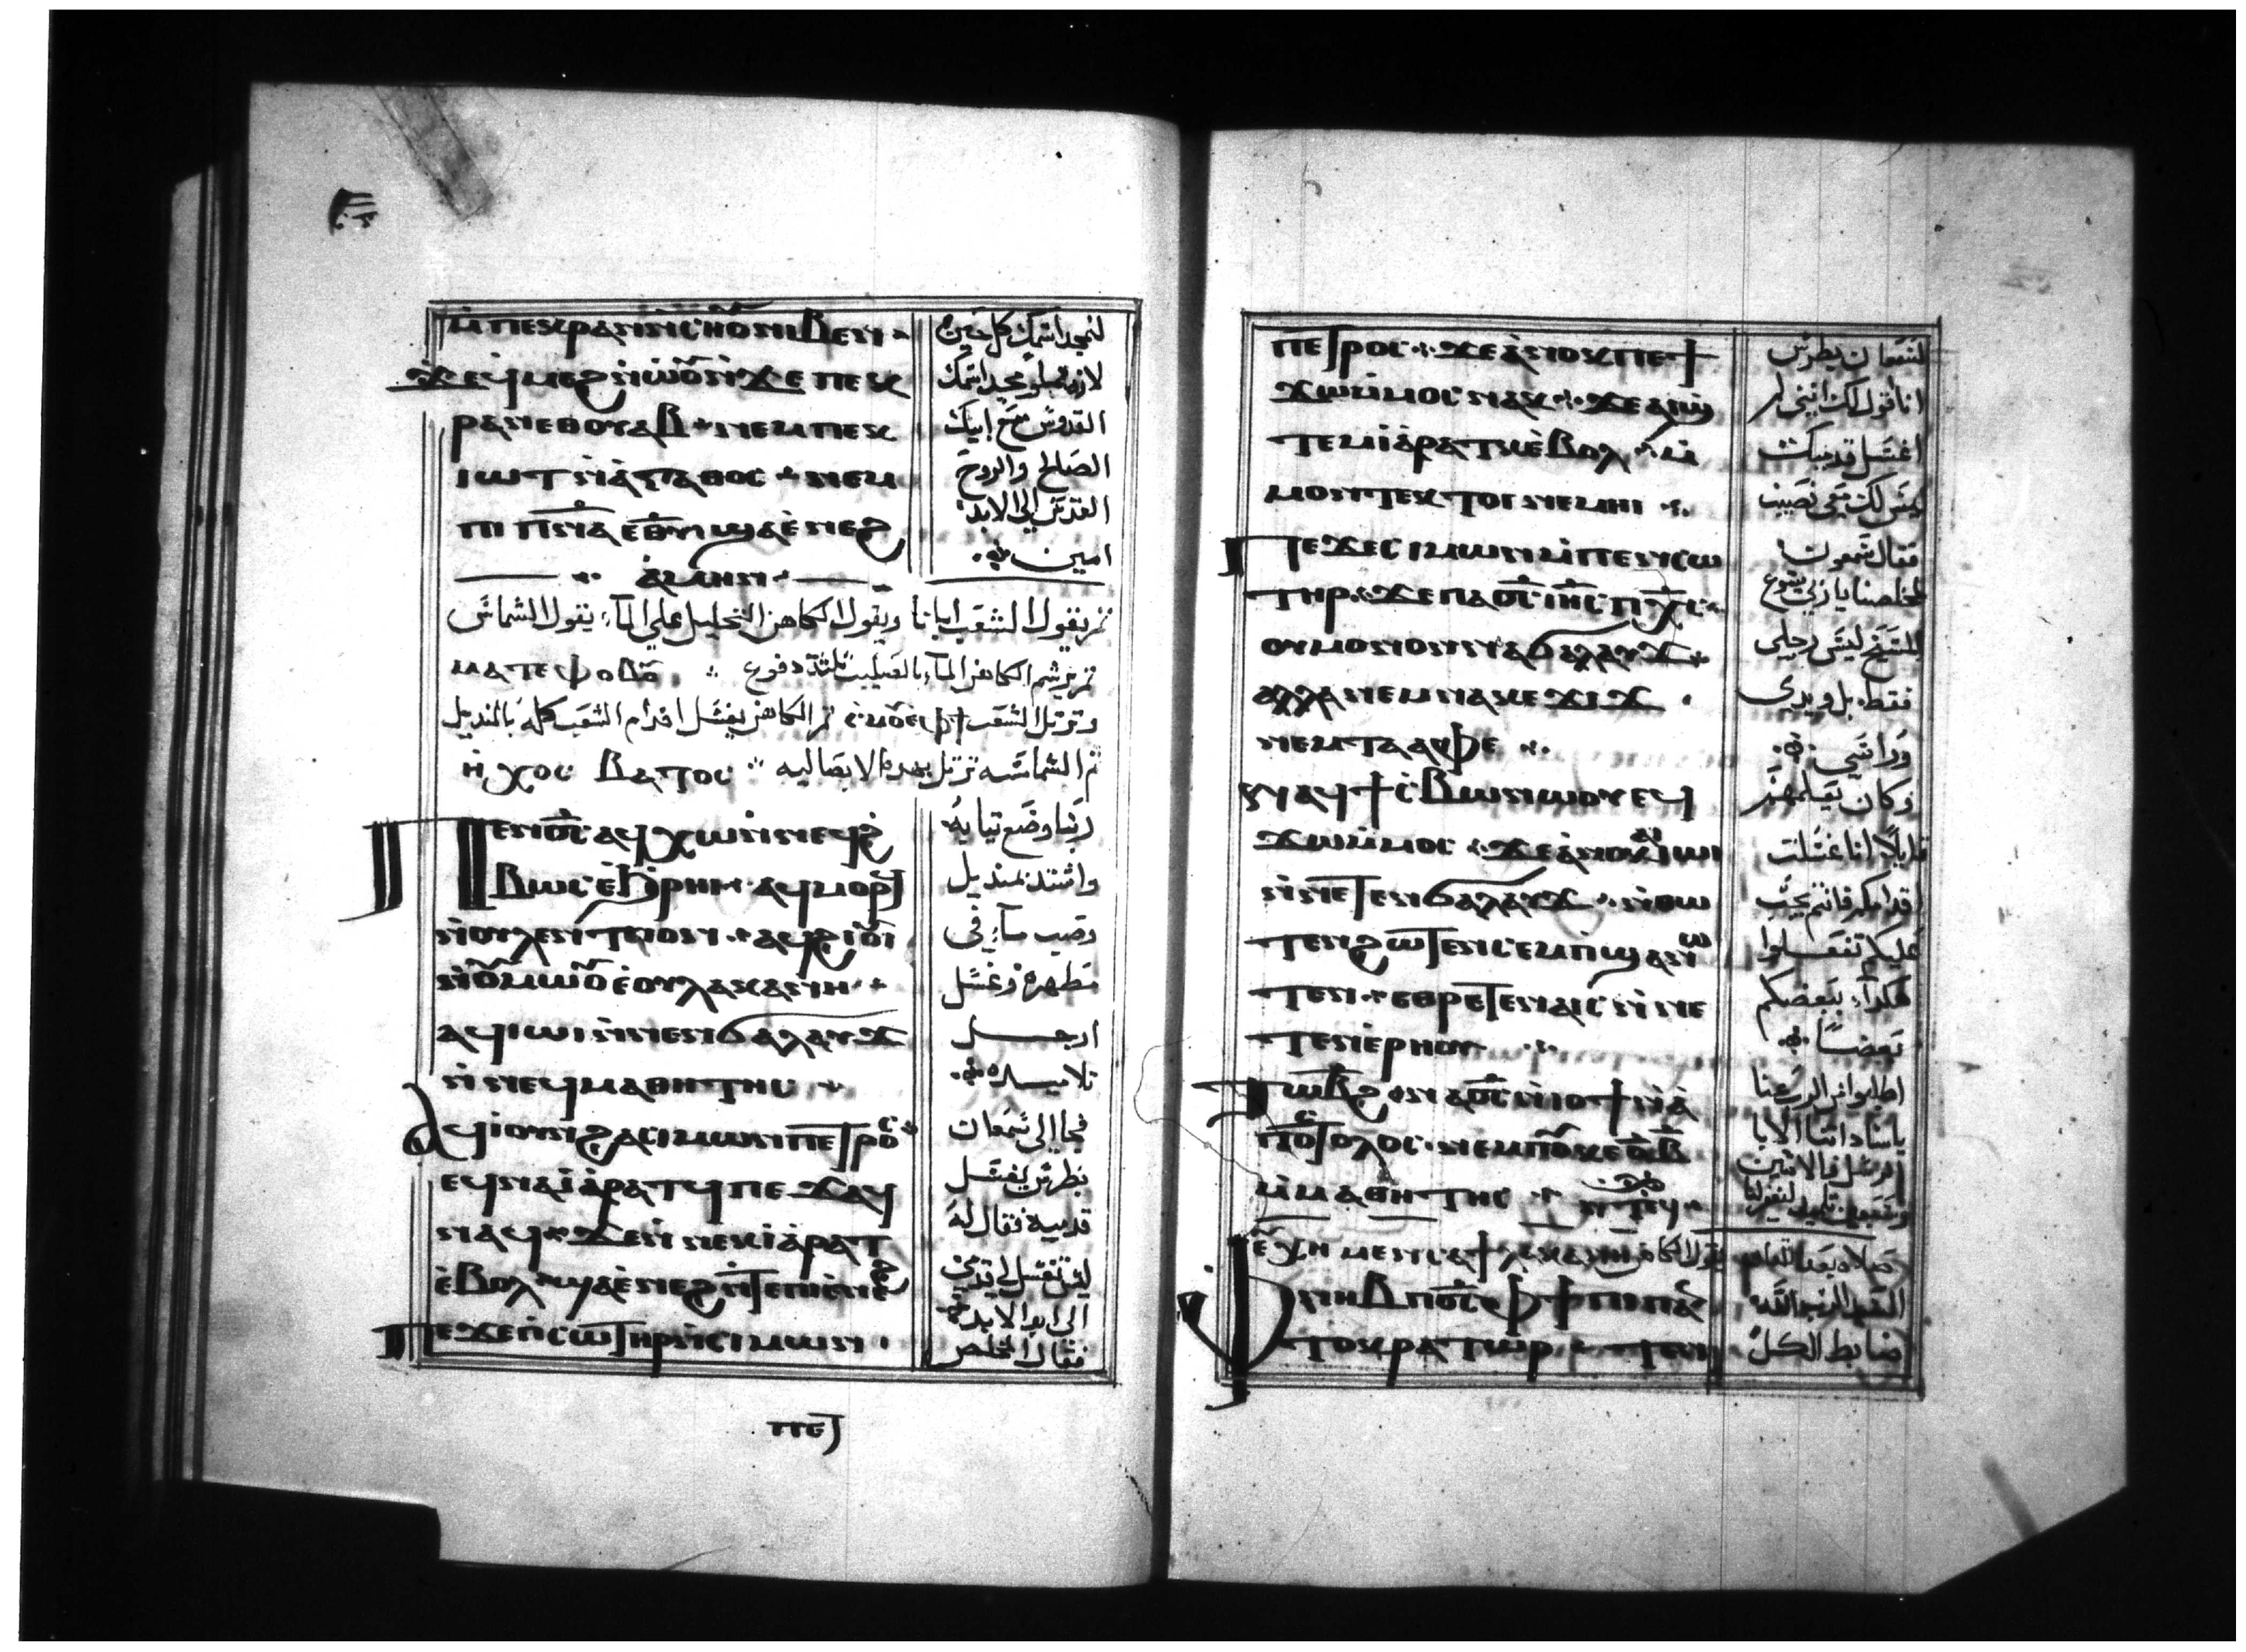 ⲙ̀ⲡⲉⲕⲣⲁⲛ ⲛ̀ⲥⲏⲟⲩ ⲛⲓⲃⲉⲛ
ϫⲉ ϥⲙⲉϩ ⲛ̀ⲱⲟⲩ ⲛ̀ϫⲉ ⲡⲉⲕ
ⲣⲁⲛ ⲉⲑⲟⲩⲁⲃ ⲛⲉⲙ ⲡⲉⲕ
ⲓⲱⲧ ⲛ̀ⲁ̀ⲅⲁⲑⲟⲥ ⲛⲉⲙ
ⲡⲓ ⲡⲛⲁ ⲉⲑⲩ ϣⲁ ⲉ̀ⲛⲉϩ
ⲁⲙⲏⲛ
لنمجد اسمك كل حين
لانه مملو مجد اسمك
القدوس مع ابيك
الصالح والروح
القدس الى الابد
امين
ثم يقول الشعب ابانا ويقول الكاهن التحليل على الماء يقول الشماس
ثم يرشم الكاهن الماء بالصليب ثلثة دفوع
وترتل الشعب ثم الكاهن يغسل اقدام الشعب كله بالمنديل
ثم الشمامسه ترتل بهده الابصاليه ⲏⲭⲟⲥ ⲃⲁⲧⲟⲥ
ⲡⲉⲛⲟⲥ ⲁϥⲭⲱ ⲛ̀ⲛⲉϥϩ
ⲃⲱⲥ ⲉ̀ϧⲣⲏⲓ ⲁϥⲙⲟⲣϥ
ⲛ̀ⲟⲩⲗⲉⲛⲧⲓⲟⲛ ⲁϥϩⲓⲟⲩⲓ
ⲛ̀ⲟⲩⲙⲱⲟⲩ ⲉ̀ⲟⲩⲗⲁⲕⲁⲛⲏ
ⲁϥⲓⲱⲓ ⲛ̀ⲛⲉⲛϭⲁⲗⲁⲩϫ
ⲛ̀ⲛⲉϥⲙⲁⲑⲏⲧⲏⲥ
ⲁϥⲓ̀ ⲟⲩⲛ ϩⲁ ⲥⲓⲙⲱⲛ ⲡⲉⲧⲣⲟⲥ
ⲉϥⲛⲁⲓⲁ̀ ⲣⲁⲧϥ ⲡⲉϫⲁϥ
ⲛⲁϥ ϫⲉ ⲛ̀ⲛⲉⲕⲓⲁ̀ ⲣⲁⲧ
ⲉ̀ⲃⲟⲗ ϣⲁ ⲉ̀ⲛⲉϩ ⲛ̀ⲧⲉ ⲡⲓⲉ̀ⲛⲉϩ
ⲡⲉϫⲉ ⲡ̀ⲥⲱⲧⲏⲣ ⲛ̀ⲥⲓⲙⲱⲛ
ربنا وضع تيابه
واشتد بمنديل
وصب ماء في
مطهره وغسل
ارجل
تلاميده
فجا الى سمعان
بطرس ليغسل
قدميه فقال له
ليس تغسل لي قدمي
الى ابد الابد
فقال المخلص
ⲡⲉⲧ
ⲡⲉⲧⲣⲟⲥ ϫⲉ ⲁ̀ⲛⲟⲕ ⲡⲉϯ
ϫⲱ ⲙ̀ⲙⲟⲥ ⲛⲁⲕ ϫⲉ ⲁⲓϣ
ⲧⲉⲙⲓⲁ̀ ⲣⲁⲧⲕ ⲉ̀ⲃⲟⲗ ⲙ̀
ⲙⲟⲛⲧⲉⲕ ⲧⲟⲓ ⲛⲉⲙⲏⲓ
ⲡⲉϫⲉ ⲥⲓⲙⲱⲛ ⲙ̀ⲡⲉⲛⲥⲱ
ⲧⲏⲣ ϫⲉ ⲡⲁⲟⲥ ⲓⲏⲥ ⲡⲭⲥ
ⲟⲩⲙⲟⲛⲟⲛ ⲛⲁϭⲁⲗⲁⲩϫ
ⲁⲗⲗⲁ ⲛⲉⲙ ⲛⲁⲕⲉϫⲓϫ
ⲛⲉⲙ ⲧⲁⲁⲫⲉ
ⲛⲁϥϯⲥ̀ⲃⲱ ⲛⲱⲟⲩ ⲉϥ
ϫⲱ ⲙ̀ⲙⲟⲥ ϫⲉ ⲁ̀ⲛⲟⲕ ⲁⲓⲓⲱⲓ
ⲛ̀ⲛⲉⲧⲉⲛϭⲁⲗⲁⲩϫ ⲛ̀ⲑⲱ
ⲧⲉⲛ ϩⲱⲧⲉⲛ ⲥⲉⲙⲡ̀ϣⲁ ⲛ̀ⲱ
ⲧⲉⲛ ⲉⲑⲣⲉⲧⲉⲛⲁⲓⲥ ⲛ̀ⲛⲉ
ⲧⲉⲛⲉ̀ⲣⲏⲟⲩ
ⲧⲱⲃϩ ⲛⲁⲟⲥ ⲛ̀ⲓⲟϯ ⲛ̀ⲁ̀
ⲡⲟⲥⲧⲟⲗⲟⲥ ⲛⲉⲙ ⲡⲓⲟ̅ⲃ̅
ⲙ̀ⲙⲁⲑⲏⲧⲏⲥ
لسمعان بطرس
انا اقول لك انني لم
اغسل قدميك
ليس لك معي نصيب
فقال سمعون
لمخلصنا يا ربي يسوع
المسيح ليس رجلي
فقط بل ويدي
وراسي
وكان يعلمهم
قايلا انا غسلت
اقدامكم فانتم يجب
عليكم تفعلوا
هكذا ببعضكم
بعضا
اطلبوا من الرب عنا
يا سادتنا الابا
الرسل والاثنين
وسبعين تلميد ليغفر لنا
ⲫⲛⲏⲃ ⲡⲟⲥ ⲫϯ ⲡⲓⲡⲁⲛ
ⲧⲟⲕⲣⲁⲧⲱⲣ ⲧⲉⲛ
السيد الرب الله
ضابط الكل